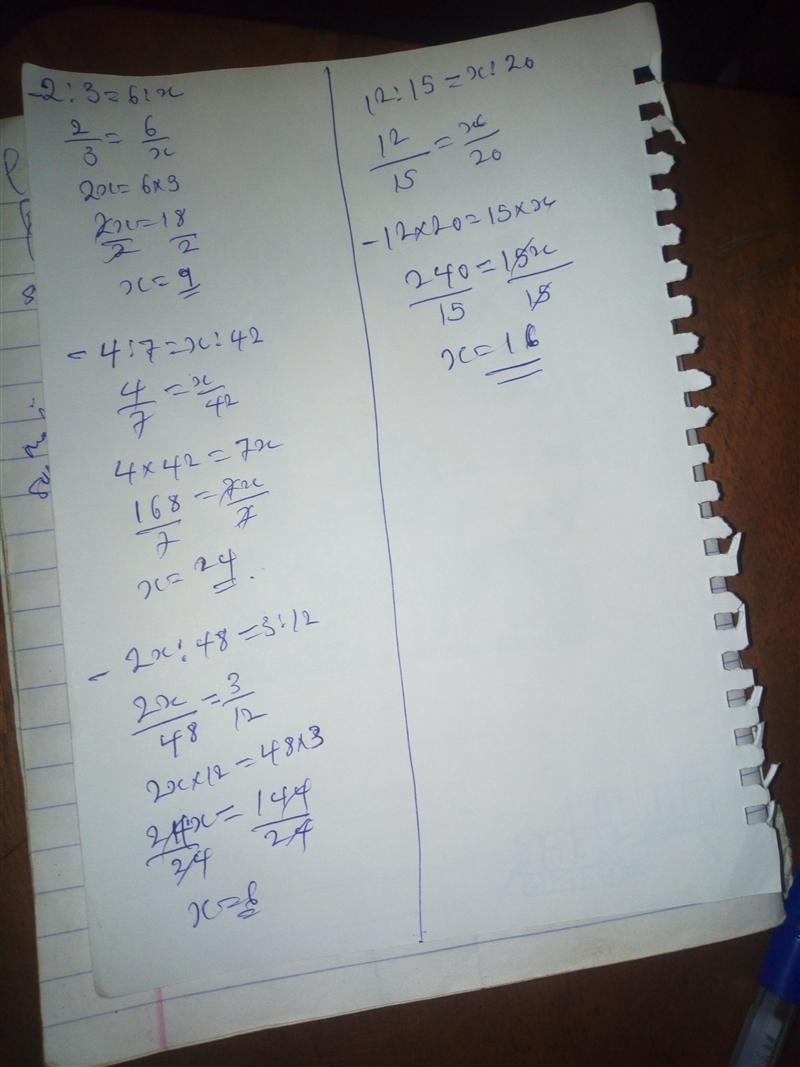 - 2:3=6:x
2/3 = 6/x
2x=6x3
2x/2=18/2
x=9
- 4:7=x:42
4/7=x/42
4x42=7x
168/7=7x/7
x=24.
- 2x:48=3:12
2x/48=3/12
2x x 12=48x3
24x/24=144/24
x=6
12:15=x:20
12/15=x/20
-12x20=15xx
240/15=15x/15
x=16